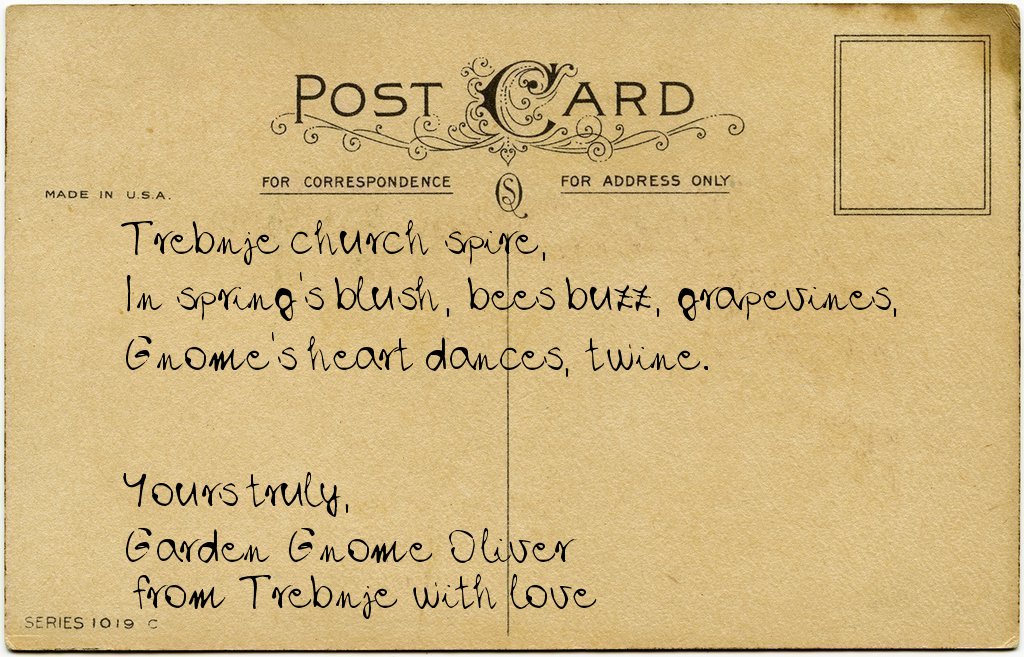 POST CARD
FOR CORRESPONDENCE
FOR ADDRESS ONLY
MADE IN U.S.A.
Trebnje church spire,
In spring's blush, bees buzz, grapevines,
Gnome's heart dances, twine.
Yours truly,
Garden Gnome Oliver
from Trebnje with love
SERIES 1019 C